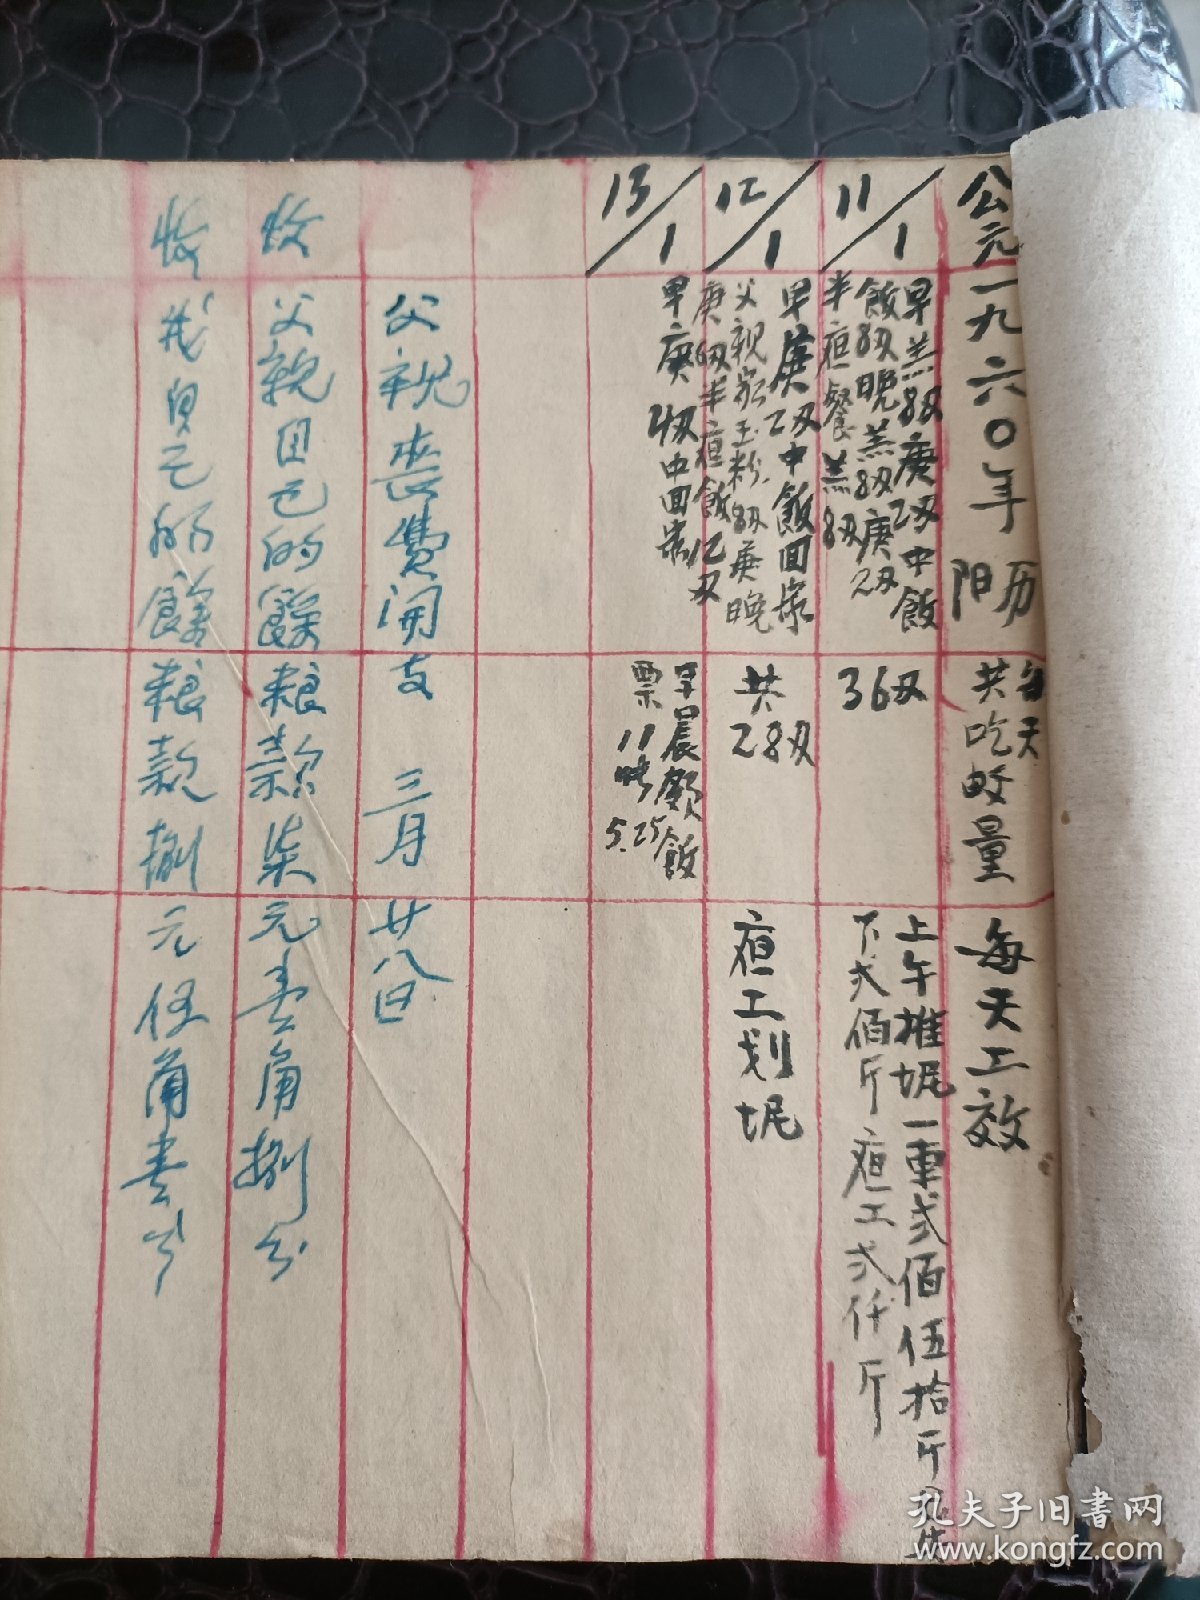 公元一九六〇年 阳历
每天
共吃 量
每天工效
11/1
早羔8两庚2两中飯
飯8两晚羔8两庚2两
半 餐羔8两
36两
上午推坭一車弍佰伍拾斤
下弍佰斤 工弍仟斤
12/1
早庚2两中飯回家
父親 玉粉8两 晚
庚8两半 飯12两
共28两
工划坭
13/1
早庚4两中回家
早晨 飯
票11 5.25
父親丧費開支 三月廿八日
收 父親自己的餘粮款柒元壹角捌分
收 我自己的餘粮款捌元伍角壹分
孔夫子旧書网
www.kongfz.com